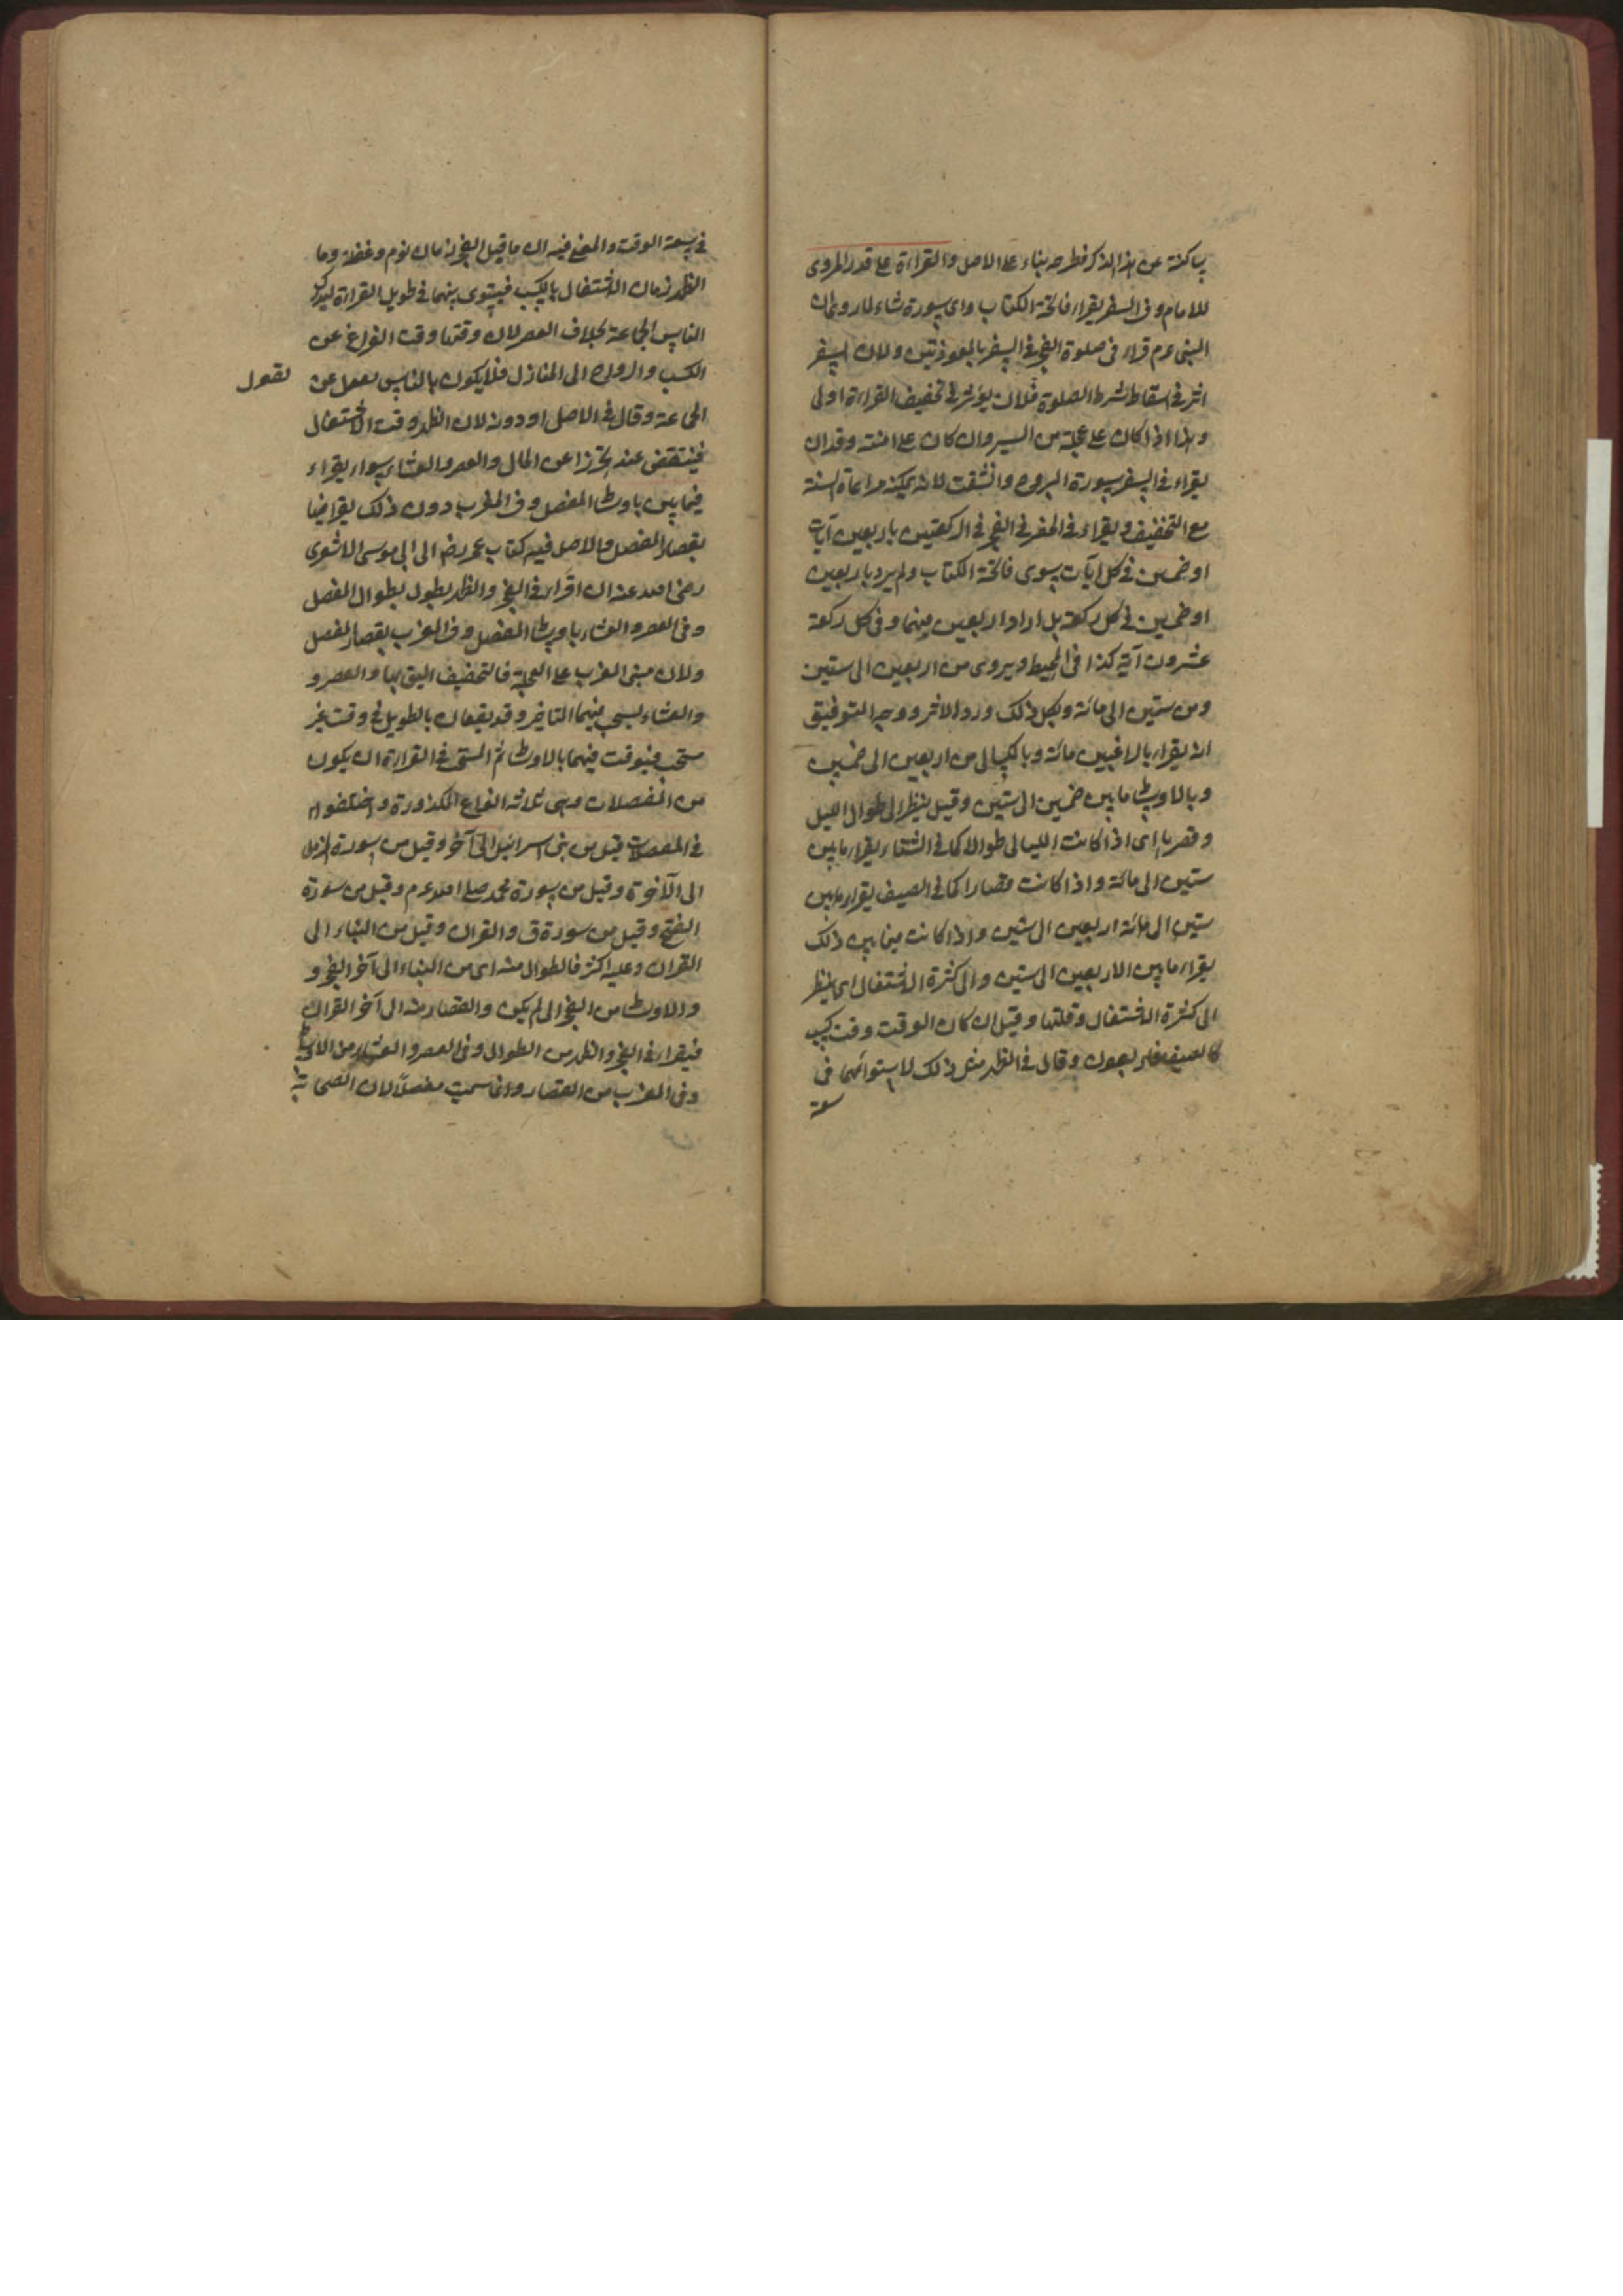 ساكتة عن هذا الذكر فطرحه بناء على الاصل والقراءة على قدر المروى
للامام وفى السفر يقراء فاتحة الكتاب واى سورة شاء لما روى ان
النبى عم قراء فى صلوة الفجر فى السفر بالمعوذتين ولان السفر
اثر فى اسقاط شرط الصلوة فلان يؤثر فى تخفيف القراءة اولى
وهذا اذا كان على عجلة من السير وان كان على امنة وقدان
يقراء فى السفر سورة البروج وانشقت لانه يمكنه مراعاة السنة
مع التخفيف ويقراء فى الحضر فى الفجر فى الركعتين باربعين آيات
او خمسين فى كل آيات سوى فاتحة الكتاب ولم يرد باربعين
او خمسين فى كل ركعة بل اراد اربعين فيهما وفى كل ركعة
عشرون آية كذا فى المحيط ويروى من اربعين الى ستين
ومن ستين الى مائة وبكل ذلك ورد الاثر ووجه التوفيق
انه يقراء بالراغبين مائة وبالكسالى من اربعين الى خمسين
وبالاوساط ما بين خمسين الى ستين وقيل ينظر الى طوال الليل
وقصرها اى اذا كانت الليالى طوالا كما فى الشتاء يقراء ما بين
ستين الى مائة واذا كانت قصارا كما فى الصيف يقراء ما بين
ستين الى مائة اربعين الى ستين واذا كانت فيما بين ذلك
يقراء ما بين الاربعين الى ستين والى كثرة الاشتغال اى ينظر
الى كثرة الاشتغال وقلتها وقيل ان كان الوقت وقت كسب
كالصيف وقال فى الظهر مثل ذلك لاستوائهما فى
سعة
فى سعة الوقت والمعنى فيه ان ما قبل الفجر زمان نوم وغفلة وما
الظهر زمان الاشتغال بالكسب فيستوى بينهما فى طويل القراءة ليدرك
الناس الجماعة بخلاف العصر لان وقتها وقت الفراغ عن
الكسب والرواح الى المنازل فلا يكون بالناس عن
نقول
الجماعة وقال فى الاصل او دونه لان الظهر وقت الاشتغال
فينتقض عنه تحرزا عن الملال والعصر والعشاء سواء يقراء
فيهما بين باوساط المفصل وفى المغرب دون ذلك يقرا فيها
بقصار المفصل والاصل فيه كتاب عمر رضه الى ابى موسى الاشعرى
رضى الله عنه ان اقراء فى الفجر والظهر بطول بطوال المفصل
وفى العصر والعشاء باوساط المفصل وفى المغرب بقصار المفصل
ولان مبنى المغرب على العجلة فالتخفيف اليق بها والعصر و
والعشاء يستحب فيهما التاخير وقد يقعان بالطويل فى وقت غير
مستحب فيوقت فيهما بالاوساط ثم المستحب فى القراءة ان يكون
من المفصلات وهى ثلاثه انواع المذكورة واختلفوا
فى المفصلات قيل من بنى اسرائيل الى آخر وقيل من سورة المزمل
الى الآخرة وقيل من سورة محمد صلى الله عم وقيل من سورة
الفتح وقيل من سورة ق والقران وقيل من النباء الى
القران وعليه اكثر فالطوال منه اى من النباء الى آخر الفجر و
والاوساط من الفجر الى لم يكن والقصار منه الى آخر القران
فيقراء فى الفجر والظهر من الطوال وفى العصر والعشاء من الاوساط
وفى المغرب من القصار وانما سميت مفصلاً لان الصحابة